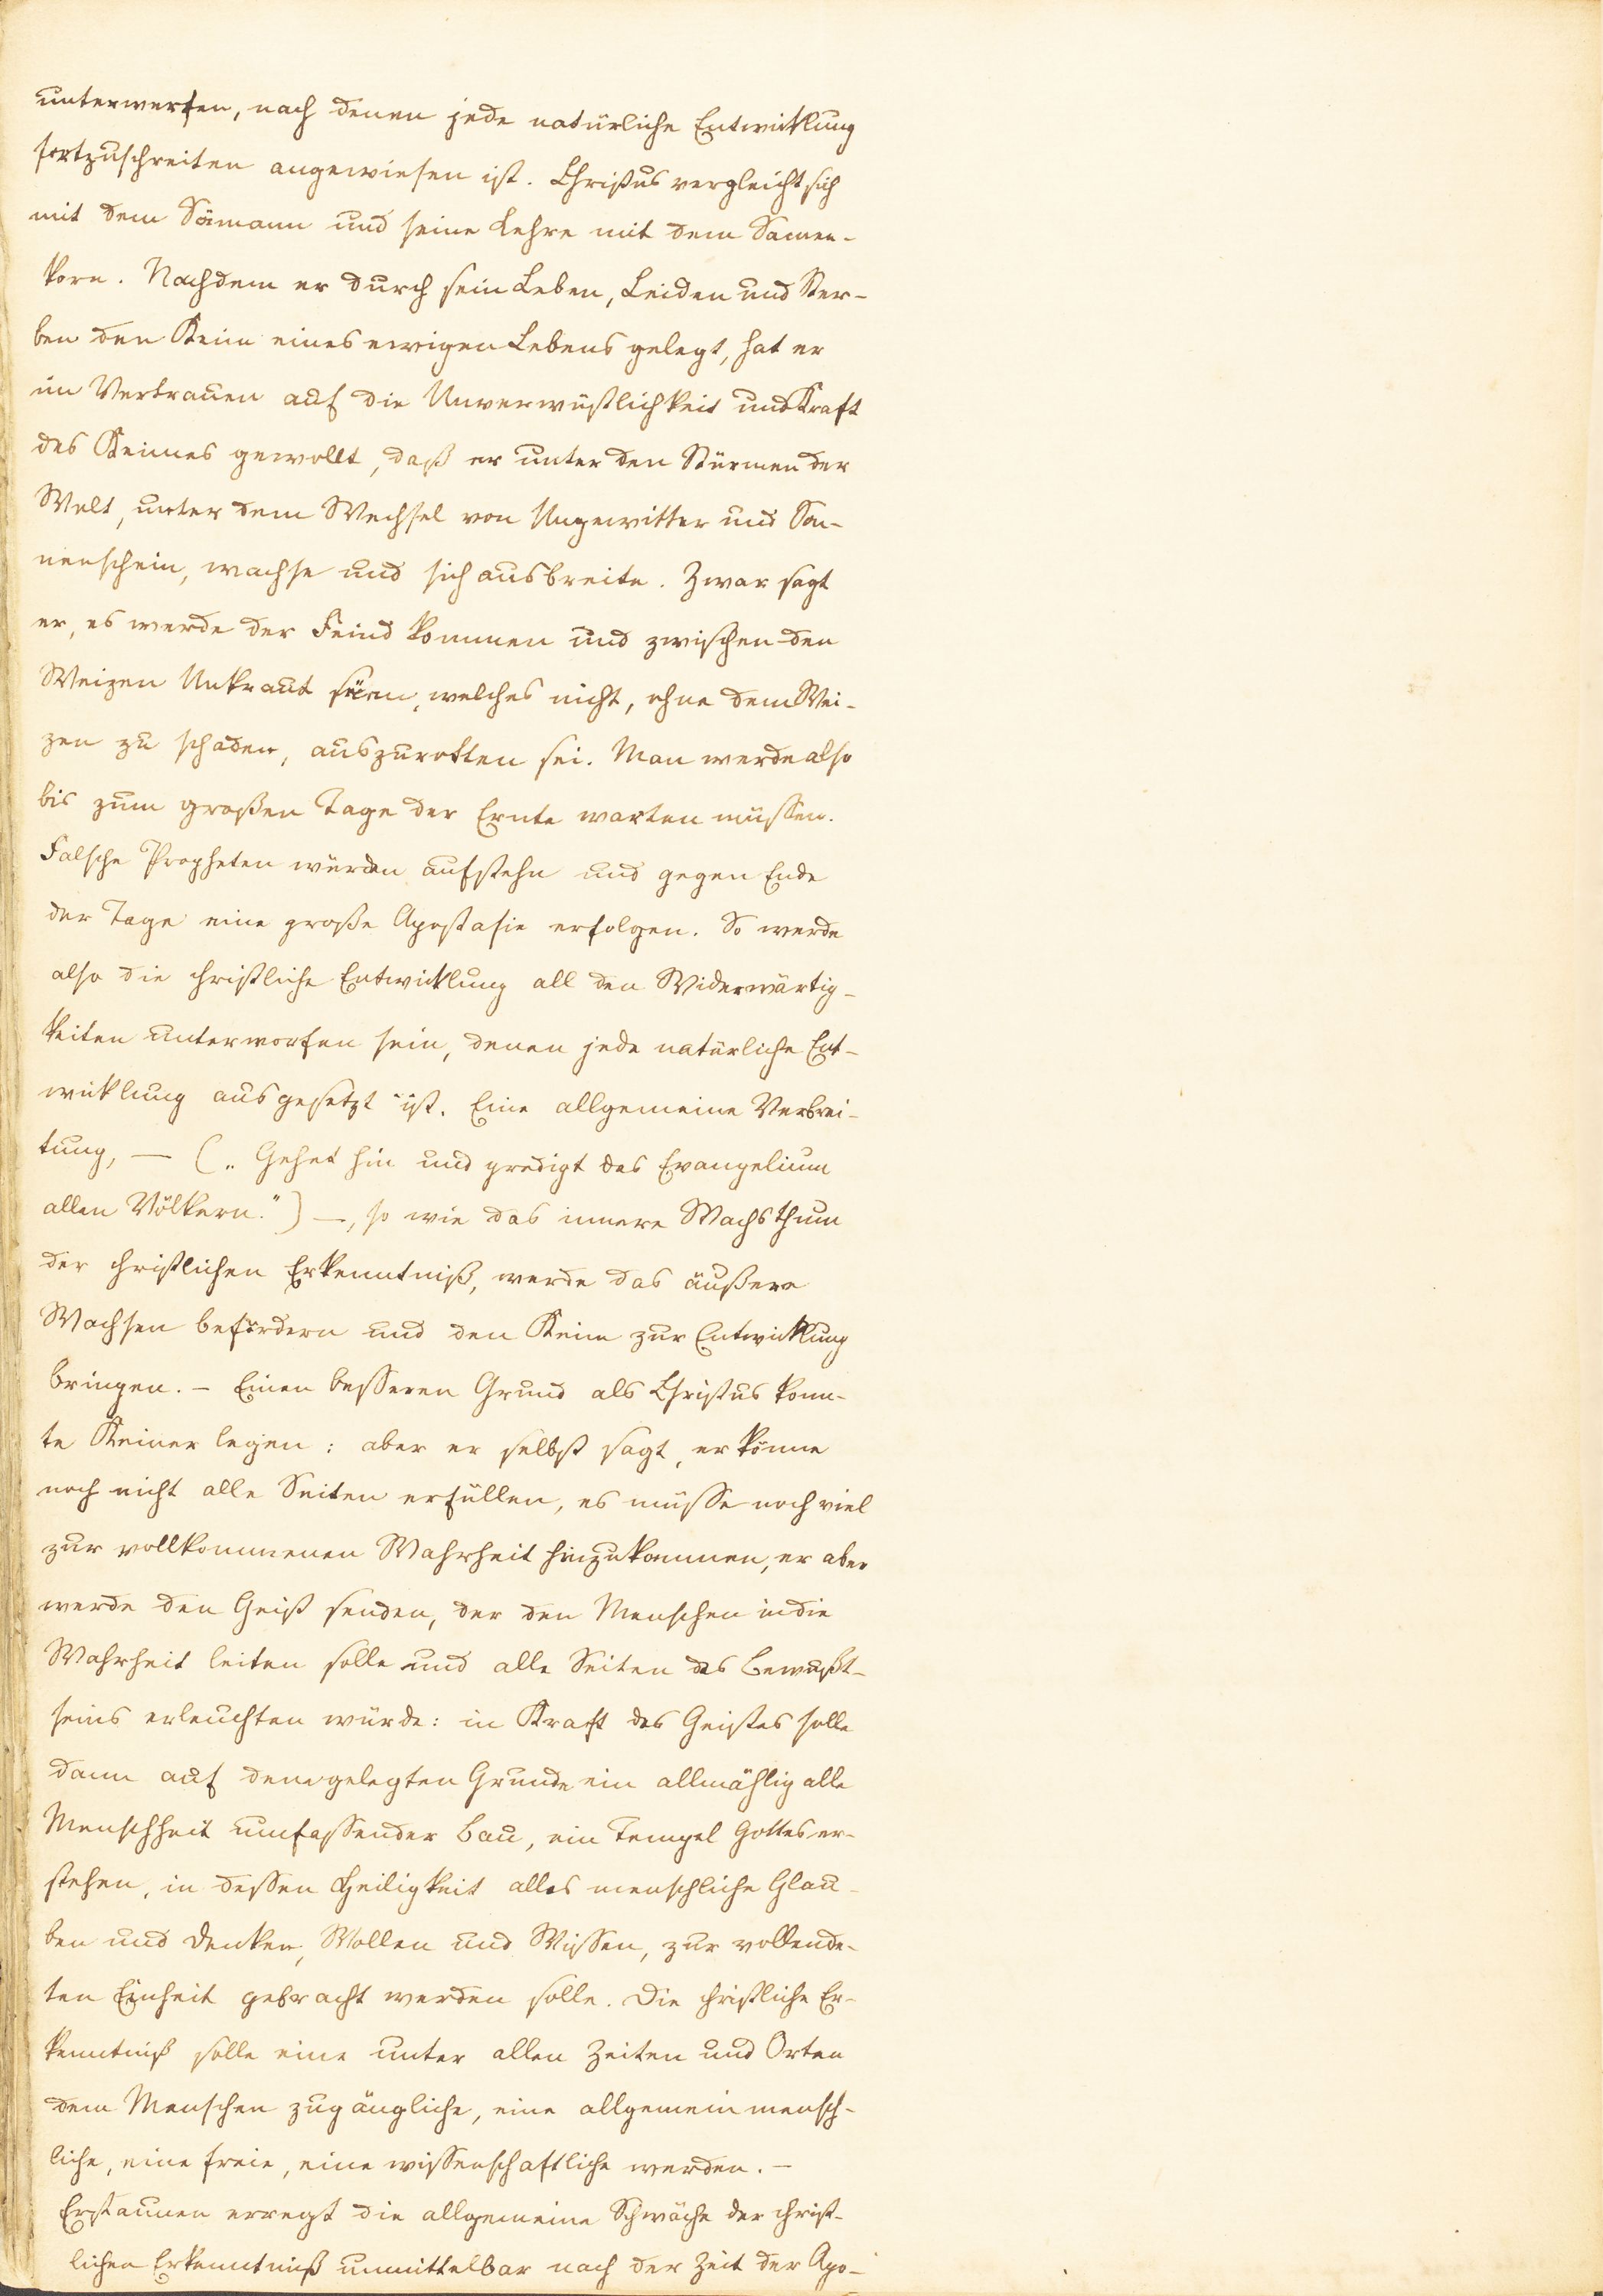 unterwerfen, nach denen jede natürliche Entwicklung
fortzuschreiten angewiesen ist. Christus vergleicht sich
mit dem Sämann und seine Lehre mit dem Samen-
korn. Nachdem er durch sein Leben, Leiden und Ster-
ben den Keim eines ewigen Lebens gelegt, hat er
im Vertrauen auf die Unverwüstlichkeit und Kraft
des Keimes gewollt, daß er unter den Stürmen der
Welt, unter dem Wechsel von Ungewitter und Son-
nenschein, wachse und sich ausbreite. Zwar sagt
er, es werde der Feind kommen und zwischen den
Weizen Unkraut säen, welches nicht, ohne dem Wei-
zen zu schaden, auszurotten sei. Man werde also
bis zum großen Tage der Ernte warten müssen.
Falsche Propheten würden aufstehn und gegen Ende
der Tage eine große Apostasie erfolgen. So werde
also die christliche Entwicklung all den Widerwärtig-
keiten unterworfen sein, denen jede natürliche Ent-
wicklung ausgesetzt ist. Eine allgemeine Verbrei-
tung, — („Gehet hin und predigt das Evangelium
allen Völkern.") —, so wie das innere Wachsthum
der christlichen Erkenntniß, werde das äußere
Wachsen befördern und den Keim zur Entwicklung
bringen. – Einen besseren Grund als Christus konn-
te Keiner legen: aber er selbst sagt, er könne
noch nicht alle Seiten erfüllen, es müsse noch viel
zur vollkommenen Wahrheit hinzukommen, er aber
werde den Geist senden, der den Menschen in die
Wahrheit leiten solle und alle Seiten des Bewußt-
seins erleuchten würde: in Kraft des Geistes solle
dann auf dem gelegten Grunde ein allmählig alle
Menschheit umfassender Bau, ein Tempel Gottes er-
stehen, in dessen Heiligkeit alles menschliche Glau-
ben und Denken, Wollen und Wissen, zur vollende-
ten Einheit gebracht werden solle. Die christliche Er-
kenntniß solle eine unter allen Zeiten und Orten
dem Menschen zugängliche, eine allgemein mensch-
liche, eine freie, eine wissenschaftliche werden. –
Erstaunen erregt die allgemeine Schwäche der christ-
lichen Erkenntniß unmittelbar nach der Zeit der Apo-